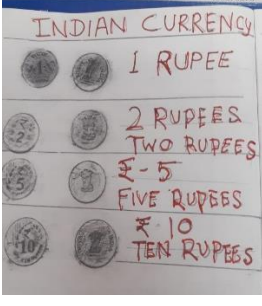 INDIAN CURRENCY
1 RUPEE
2 RUPEES
TWO RUPEES
₹-5
FIVE RUPEES
₹ 10
TEN RUPEES